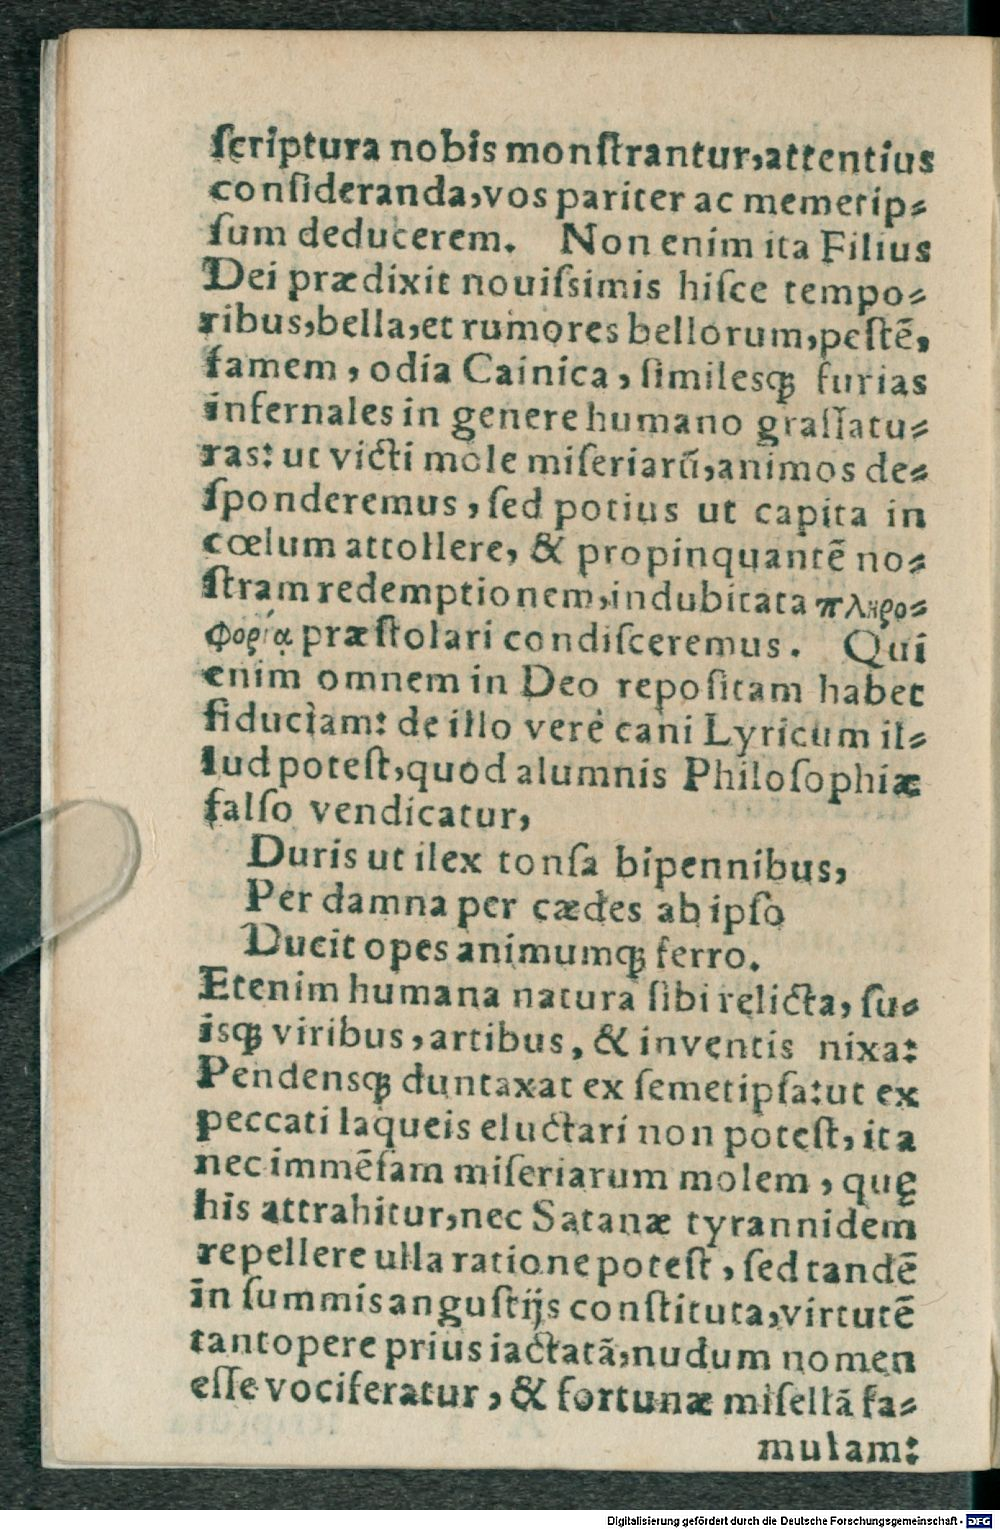 ſcriptura nobis monſtrantur,attentius
conſideranda,vos pariter ac memetip⸗
ſum deducerem. Non enim ita Filius
Dei prædixit nouiſsimis hiſce tempo⸗
ribus,bella,et rumores bellorum,peſtẽ,
famem, odia Cainica, ſimilesq́ꝫ furias
infernales in genere humano graſſatu⸗
ras: ut victi mole miſeriarũ,animos de⸗
ſponderemus, ſed potius ut capita in
cœlum attollere, & propinquantẽ no⸗
ſtram redemptionem,indubitata πληρο⸗
φορίᾳ præſtolari condiſceremus. Qui
enim omnem in Deo repoſitam habet
fiduciam: de illo verè cani Lyricum il⸗
lud poteſt,quod alumnis Philoſophiæ
falſo vendicatur,
Duris ut ilex tonſa bipennibus,
Per damna per cædes ab ipſo
Ducit opes animumqꝫ ferro.
Etenim humana natura ſibi relicta, ſu⸗
isqꝫ viribus, artibus, & inventis nixa:
Pendensqꝫ duntaxat ex ſemetipſa: ut ex
peccati laqueis eluctari non poteſt, ita
nec immẽſam miſeriarum molem, quę
his attrahitur,nec Satanæ tyrannidem
repellere ulla ratione poteſt, ſed tandẽ
in ſummis anguſtijs conſtituta,virtutẽ
tantopere prius iactatã,nudum nomen
eſſe vociferatur, & fortunæ miſellã fa⸗
mulam:
Digitalisierung gefördert durch die Deutsche Forschungsgemeinschaft - DFG